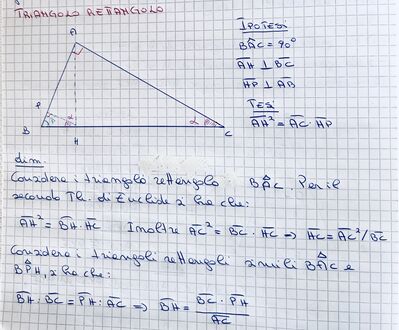 TRIANGOLO RETTANGOLO
A
P
α
α
B
H
C
IPOTESI
BÂC = 90°
A̅H̅ ⊥ B̅C̅
H̅P̅ ⊥ A̅B̅
TESI
A̅H̅² = A̅C̅ · H̅P̅
dim.
Considero i triangolo rettangolo BÂC. Per il
secondo Th. di Euclide si ha che:
A̅H̅² = B̅H̅ · H̅C̅ Inoltre A̅C̅² = B̅C̅ · H̅C̅ ⇒ H̅C̅ = A̅C̅²/B̅C̅
Considero i triangoli rettangoli simili BÂC e
BP̂H, si ha che:
B̅H̅ : B̅C̅ = P̅H̅ : A̅C̅ ⇒ B̅H̅ = B̅C̅ · P̅H̅ / A̅C̅